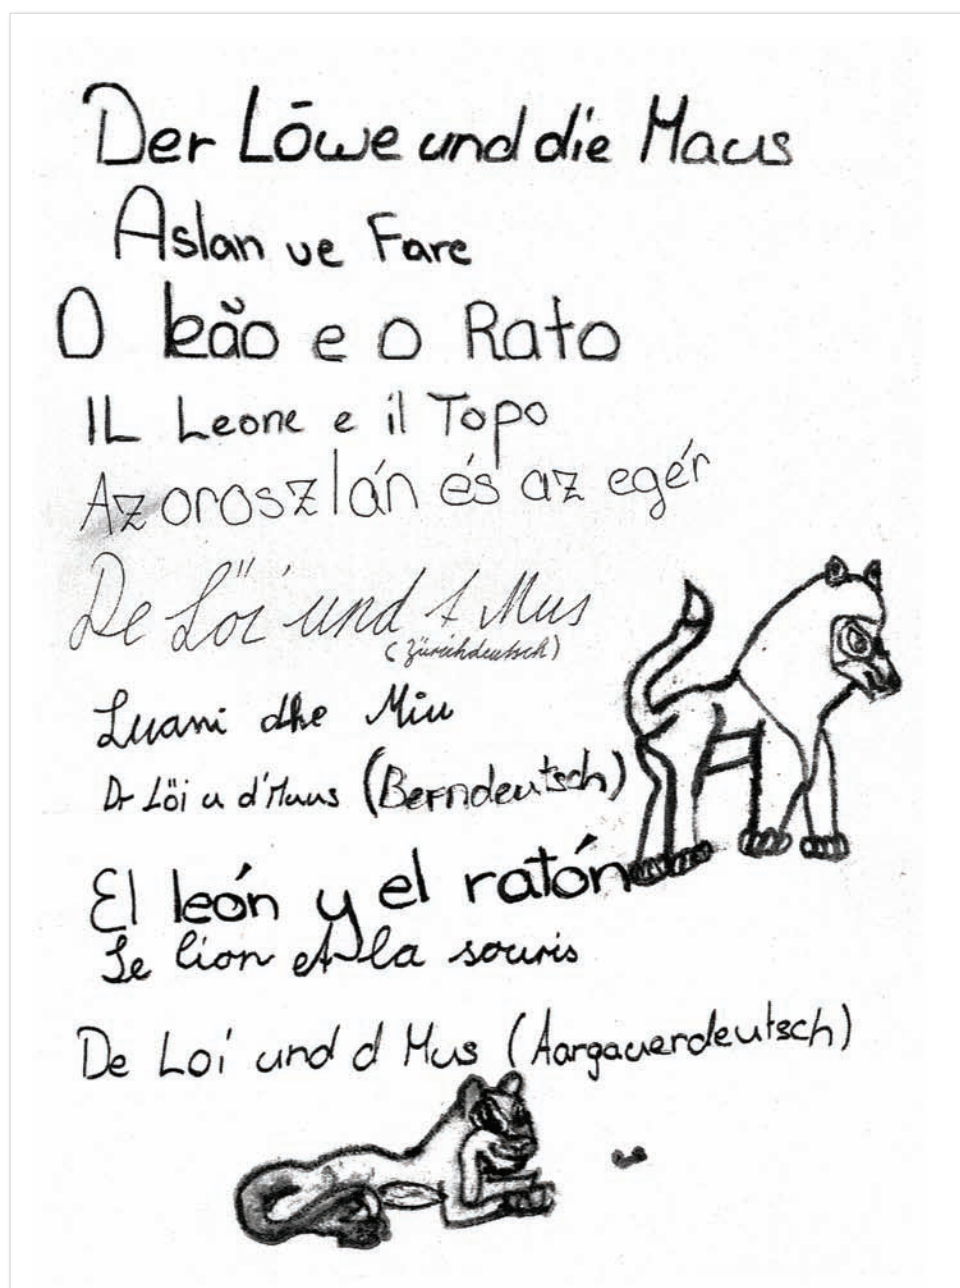 Der Löwe und die Maus
Aslan ve Fare
O leão e o Rato
IL Leone e il Topo
Az oroszlán és az egér
De Löi und t Mus
(Zürichdeutsch)
Luani dhe Miu
Dr Löi u d'Muus (Berndeutsch)
El león y el ratón
Le lion et la souris
De Loi und d Mus (Aargauerdeutsch)